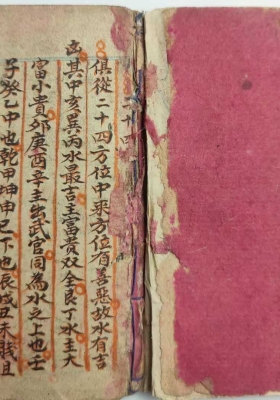 俱從二十四方位中來方位有善惡放水有吉
凶其甲亥巽丙水最吉主富貴双全艮丁水主大
富小貴卯庚酉辛主出武官同為水之上也壬
子癸乙中也乾甲坤申巳丁也辰戌丑未賤且